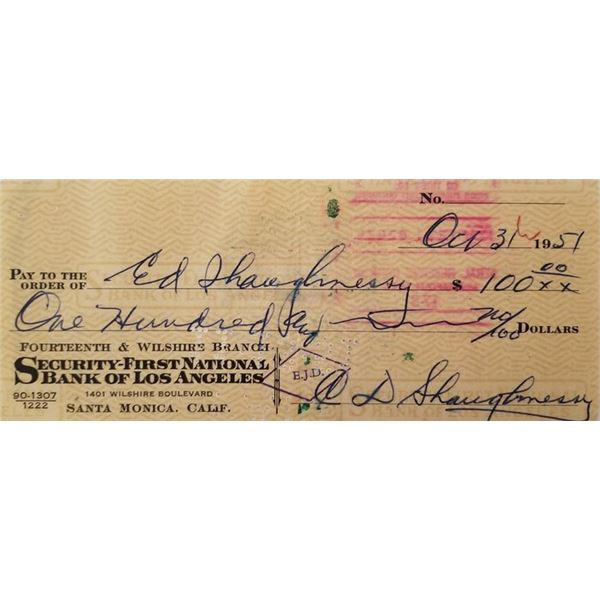 No.
Oct 31 1951
PAY TO THE ORDER OF Ed Shaughnessy $ 100 00/xx
One Hundred no/100 DOLLARS
FOURTEENTH & WILSHIRE BRANCH
SECURITY-FIRST NATIONAL
BANK OF LOS ANGELES
E.J.D.
90-1307
1222
1401 WILSHIRE BOULEVARD
SANTA MONICA, CALIF.
D Shaughnessy